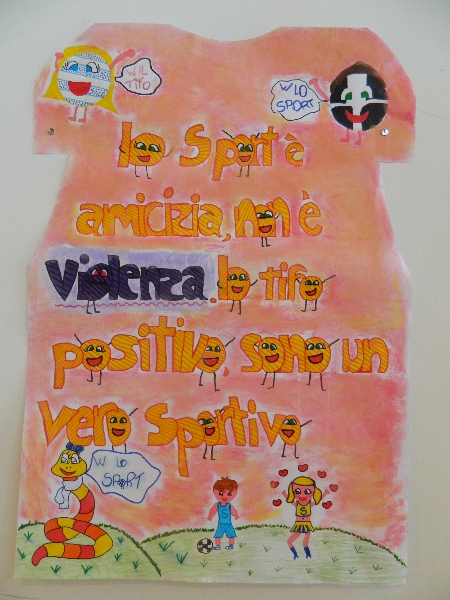 W IL
TIFO
W LO
SPORT
lo Sport è
amicizia, non è
violenza. Io tifo
positivo, sono un
vero Sportivo
W LO
SPORT
S